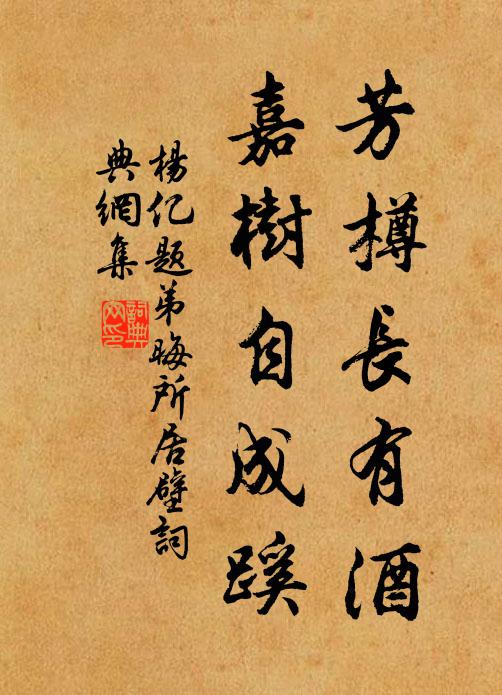 芳樽長有酒
嘉樹自成蹊
楊亿題弟晦所居壁詞
典網集
詞典
网印